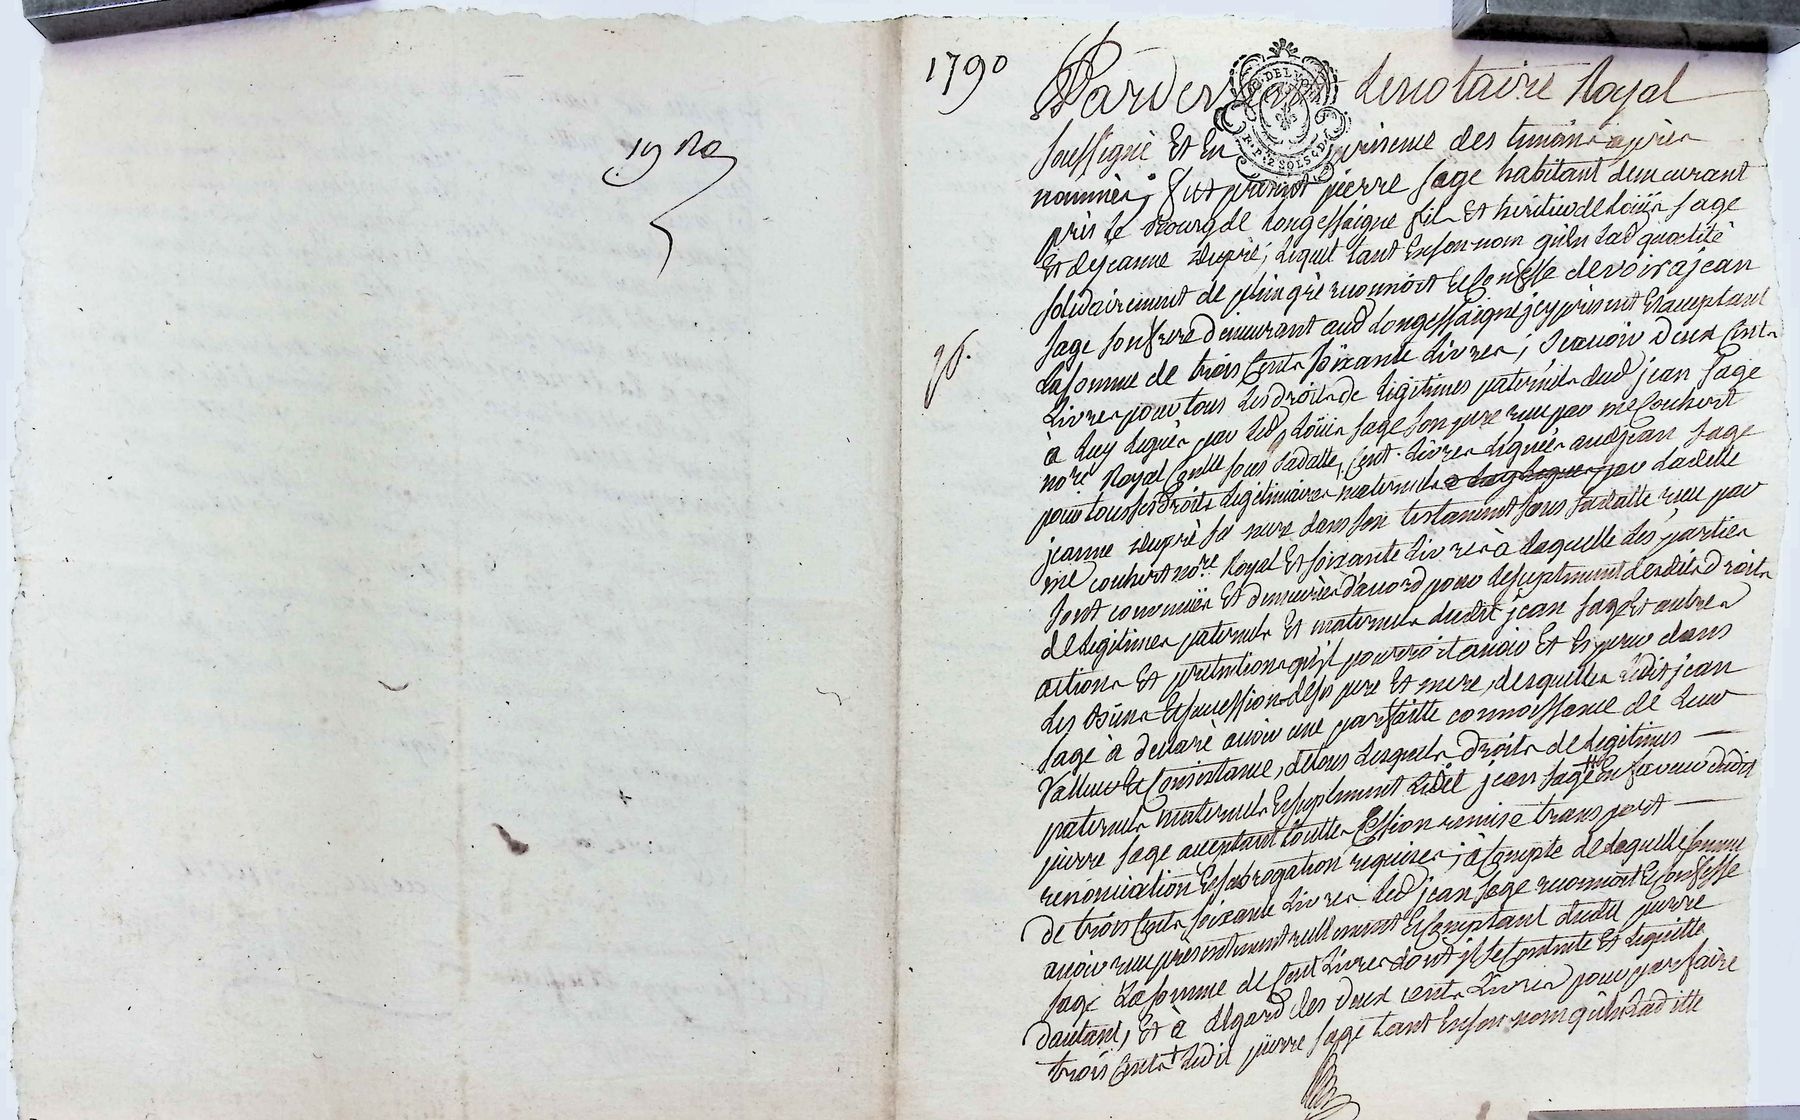 1790
Pardevant Le notaire Royal
Soussigné Et En presence des temoins après
nommés, fut present pierre Sage habitant demeurant
près Le Bourg de Longessaigne fils Et heritier de Loüis Sage
Et de jeanne Dupré, Lequel tant En son nom qu'En Lad qualité
solidairement de plein gré reconnoit Et Confesse devoir a jean
Sage son frere demeurant aud Longessaigne icy present Et acceptant
La somme de trois Cents soixante Livres, Scavoir deux Cents
Livres pour tous Les droits de Legitimes paternels dud jean Sage
à Luy Legués par Led Loüis Sage son pere reçu par me Couhert
nore Royal sous Sadatte, Cent Livres Legués aud jean Sage
pour tous ses droits Legitimaires maternels par Ladette
jeanne Dupré sa mere dans son testament sous sadatte reçu par
me Couhert nore Royal Et soixante Livres à Laquelle Les parties
sont convenües Et demeurées d'accord pour Le suplement desdits droits
de Legitimes paternels Et maternels dudit jean Sage Et autres
actions Et pretentions qu'il pourroit avoir Et Esperer dans
Les Biens Et succession de ses pere Et mere, desquelles Ledit jean
Sage à declaré avoir une parfaitte connoissance de Leur
Valleur Et Consistance, de tous Lesquels droits de Legitimes
paternels maternels Et suplement Ledit jean Sage En faveur dudit
pierre Sage acceptant toutte Cession remise transport
renonciation Et subrogation requises; à Compte de Laquelle somme
de trois Cents soixante Livres Led jean Sage reconnoit Et Confesse
avoir reçu presentement reellement Et Comptant dudit pierre
Sage La somme de Cent Livres dont il se Contente Et Lequitte
dautant, Et à L'égard des deux cents Livres pour parfaire
trois Cents Ledit pierre Sage tant En son nom qu'En Laditte